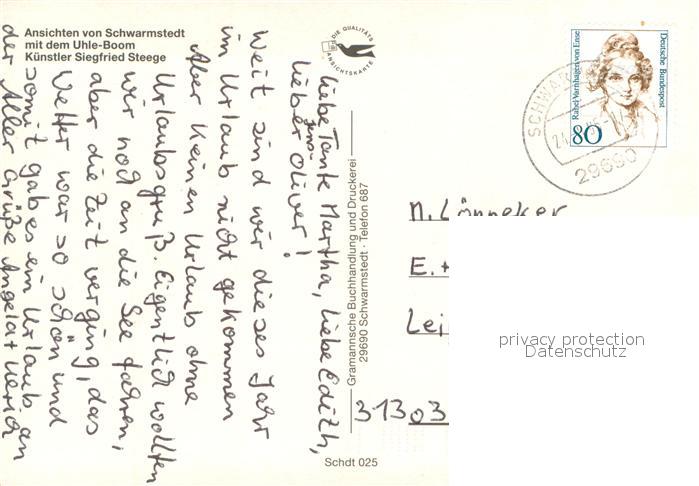 Ansichten von Schwarmstedt
mit dem Uhle-Boom
Künstler Siegfried Steege
DIE QUALITÄTS
ANSICHTSKARTE
Rahel Varnhagen von Ense
Deutsche Bundespost
80
SCHWAR
29690
liebe Tante Martha, liebe Edith,
lieber Oliver!
Weit sind wir dieses Jahr
im Urlaub nicht gekommen
Aber keinen Urlaub ohne
Urlaubsgruß. Eigentlich wollten
wir noch an die See fahren,
aber die Zeit verging, das
Wetter war so schön und
somit gab es ein Urlaub an
der Aller Grüße
Gramannsche Buchhandlung und Druckerei
29690 Schwarmstedt · Telefon 687
N. Lönneker
E. +
Lei
31303
privacy protection
Datenschutz
Schdt 025